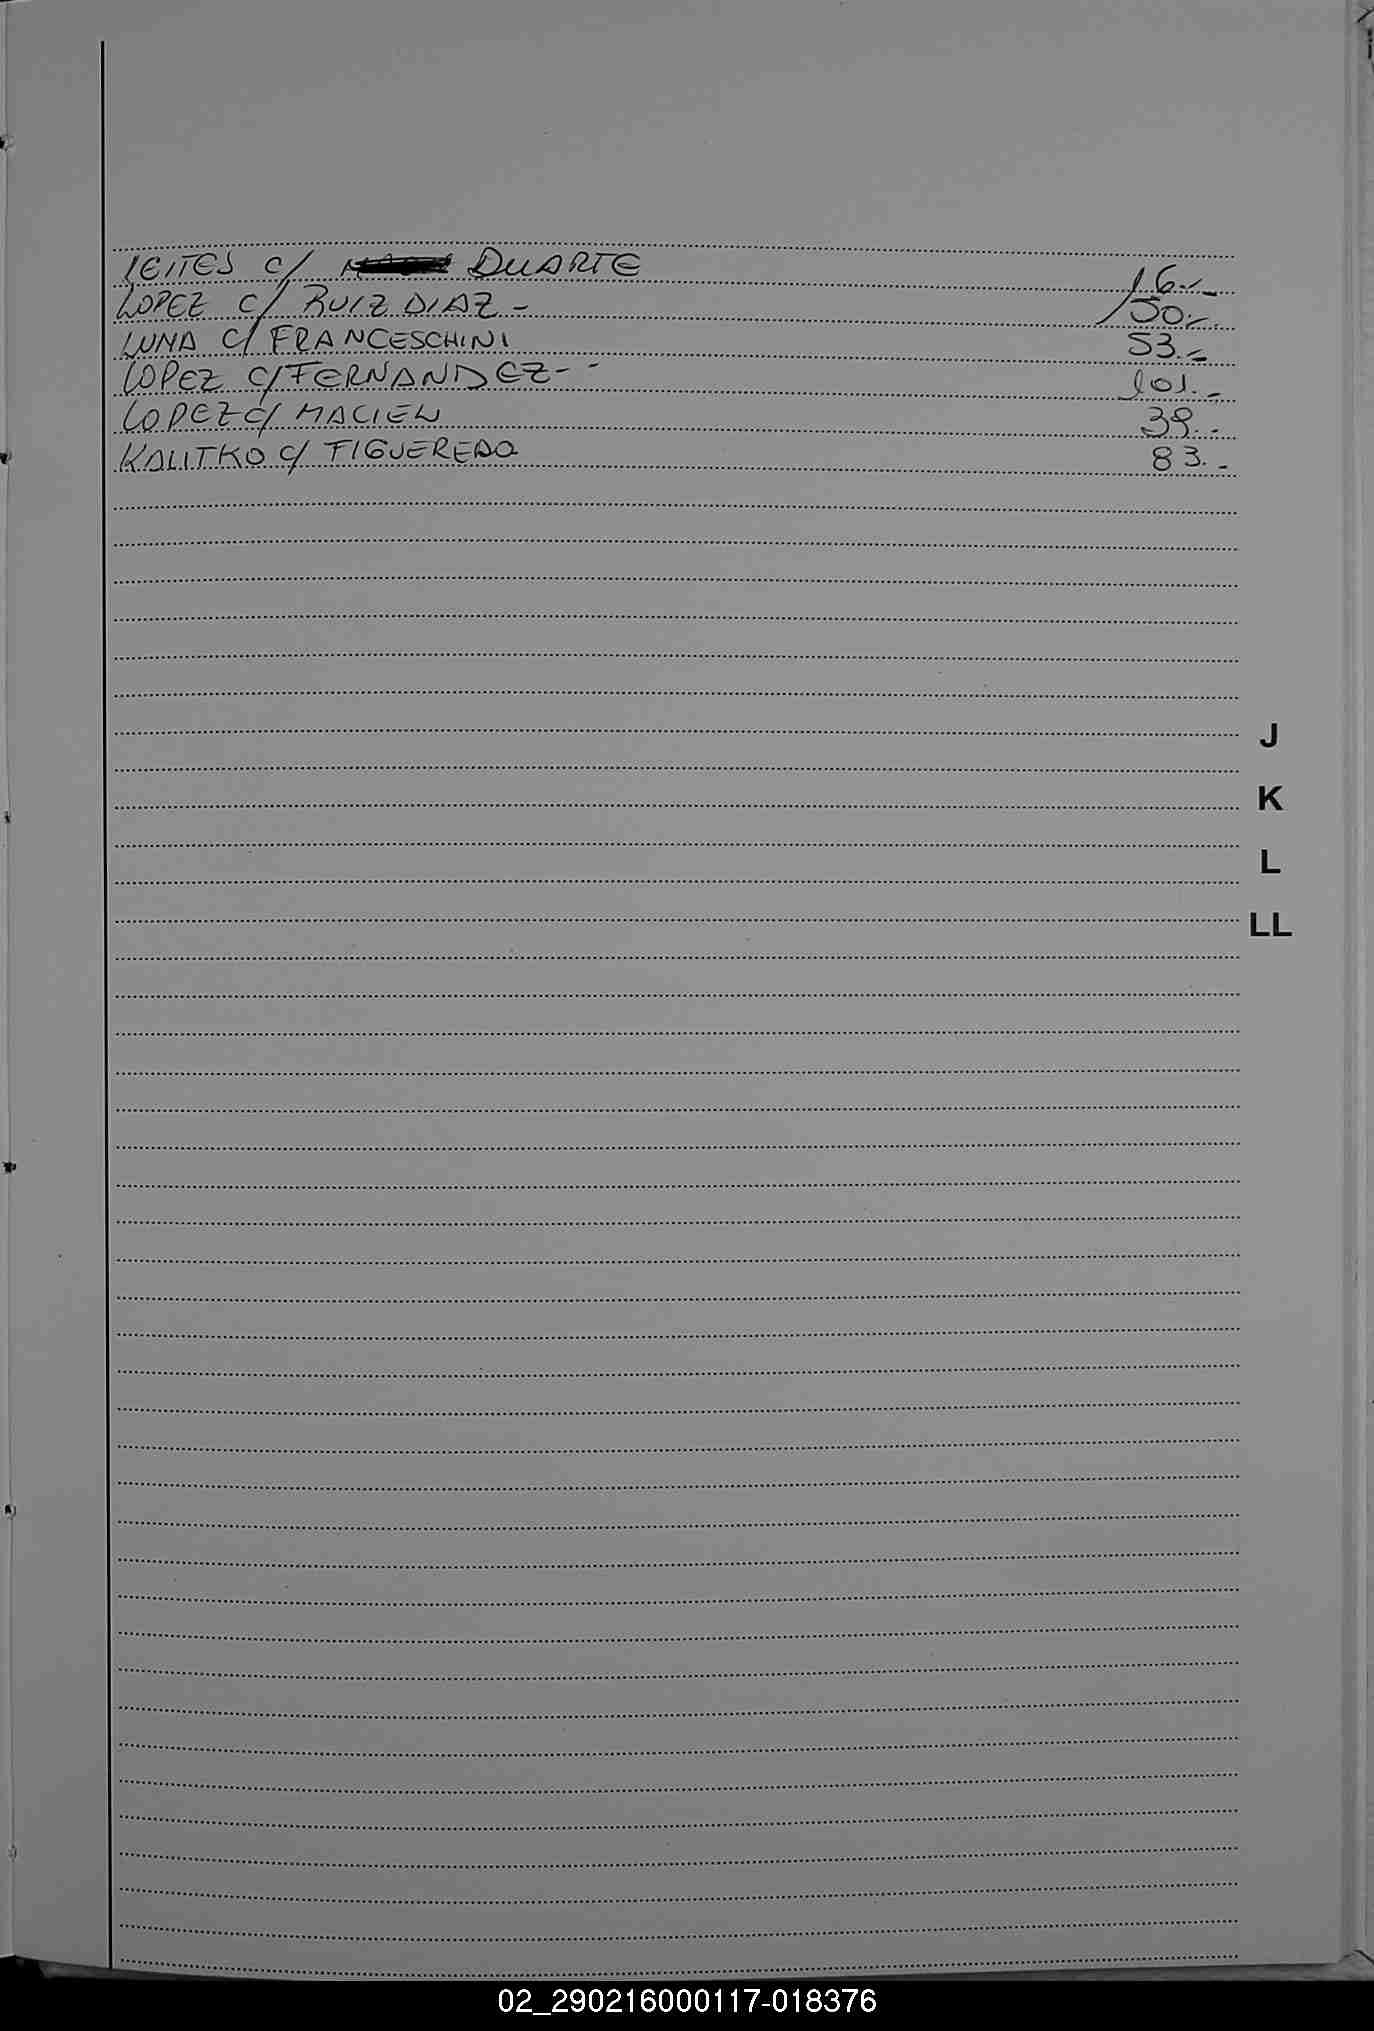 LEITES c/ DUARTE 16.-
LOPEZ C/ RUIZ DIAZ - 50.-
LUNA C/ FRANCESCHINI 53.-
LOPEZ C/ FERNANDEZ - - 101.-
LOPEZ c/ MACIEL 39.-
KALITKO c/ FIGUEREDO 83.-
J
K
L
LL
02_290216000117-018376